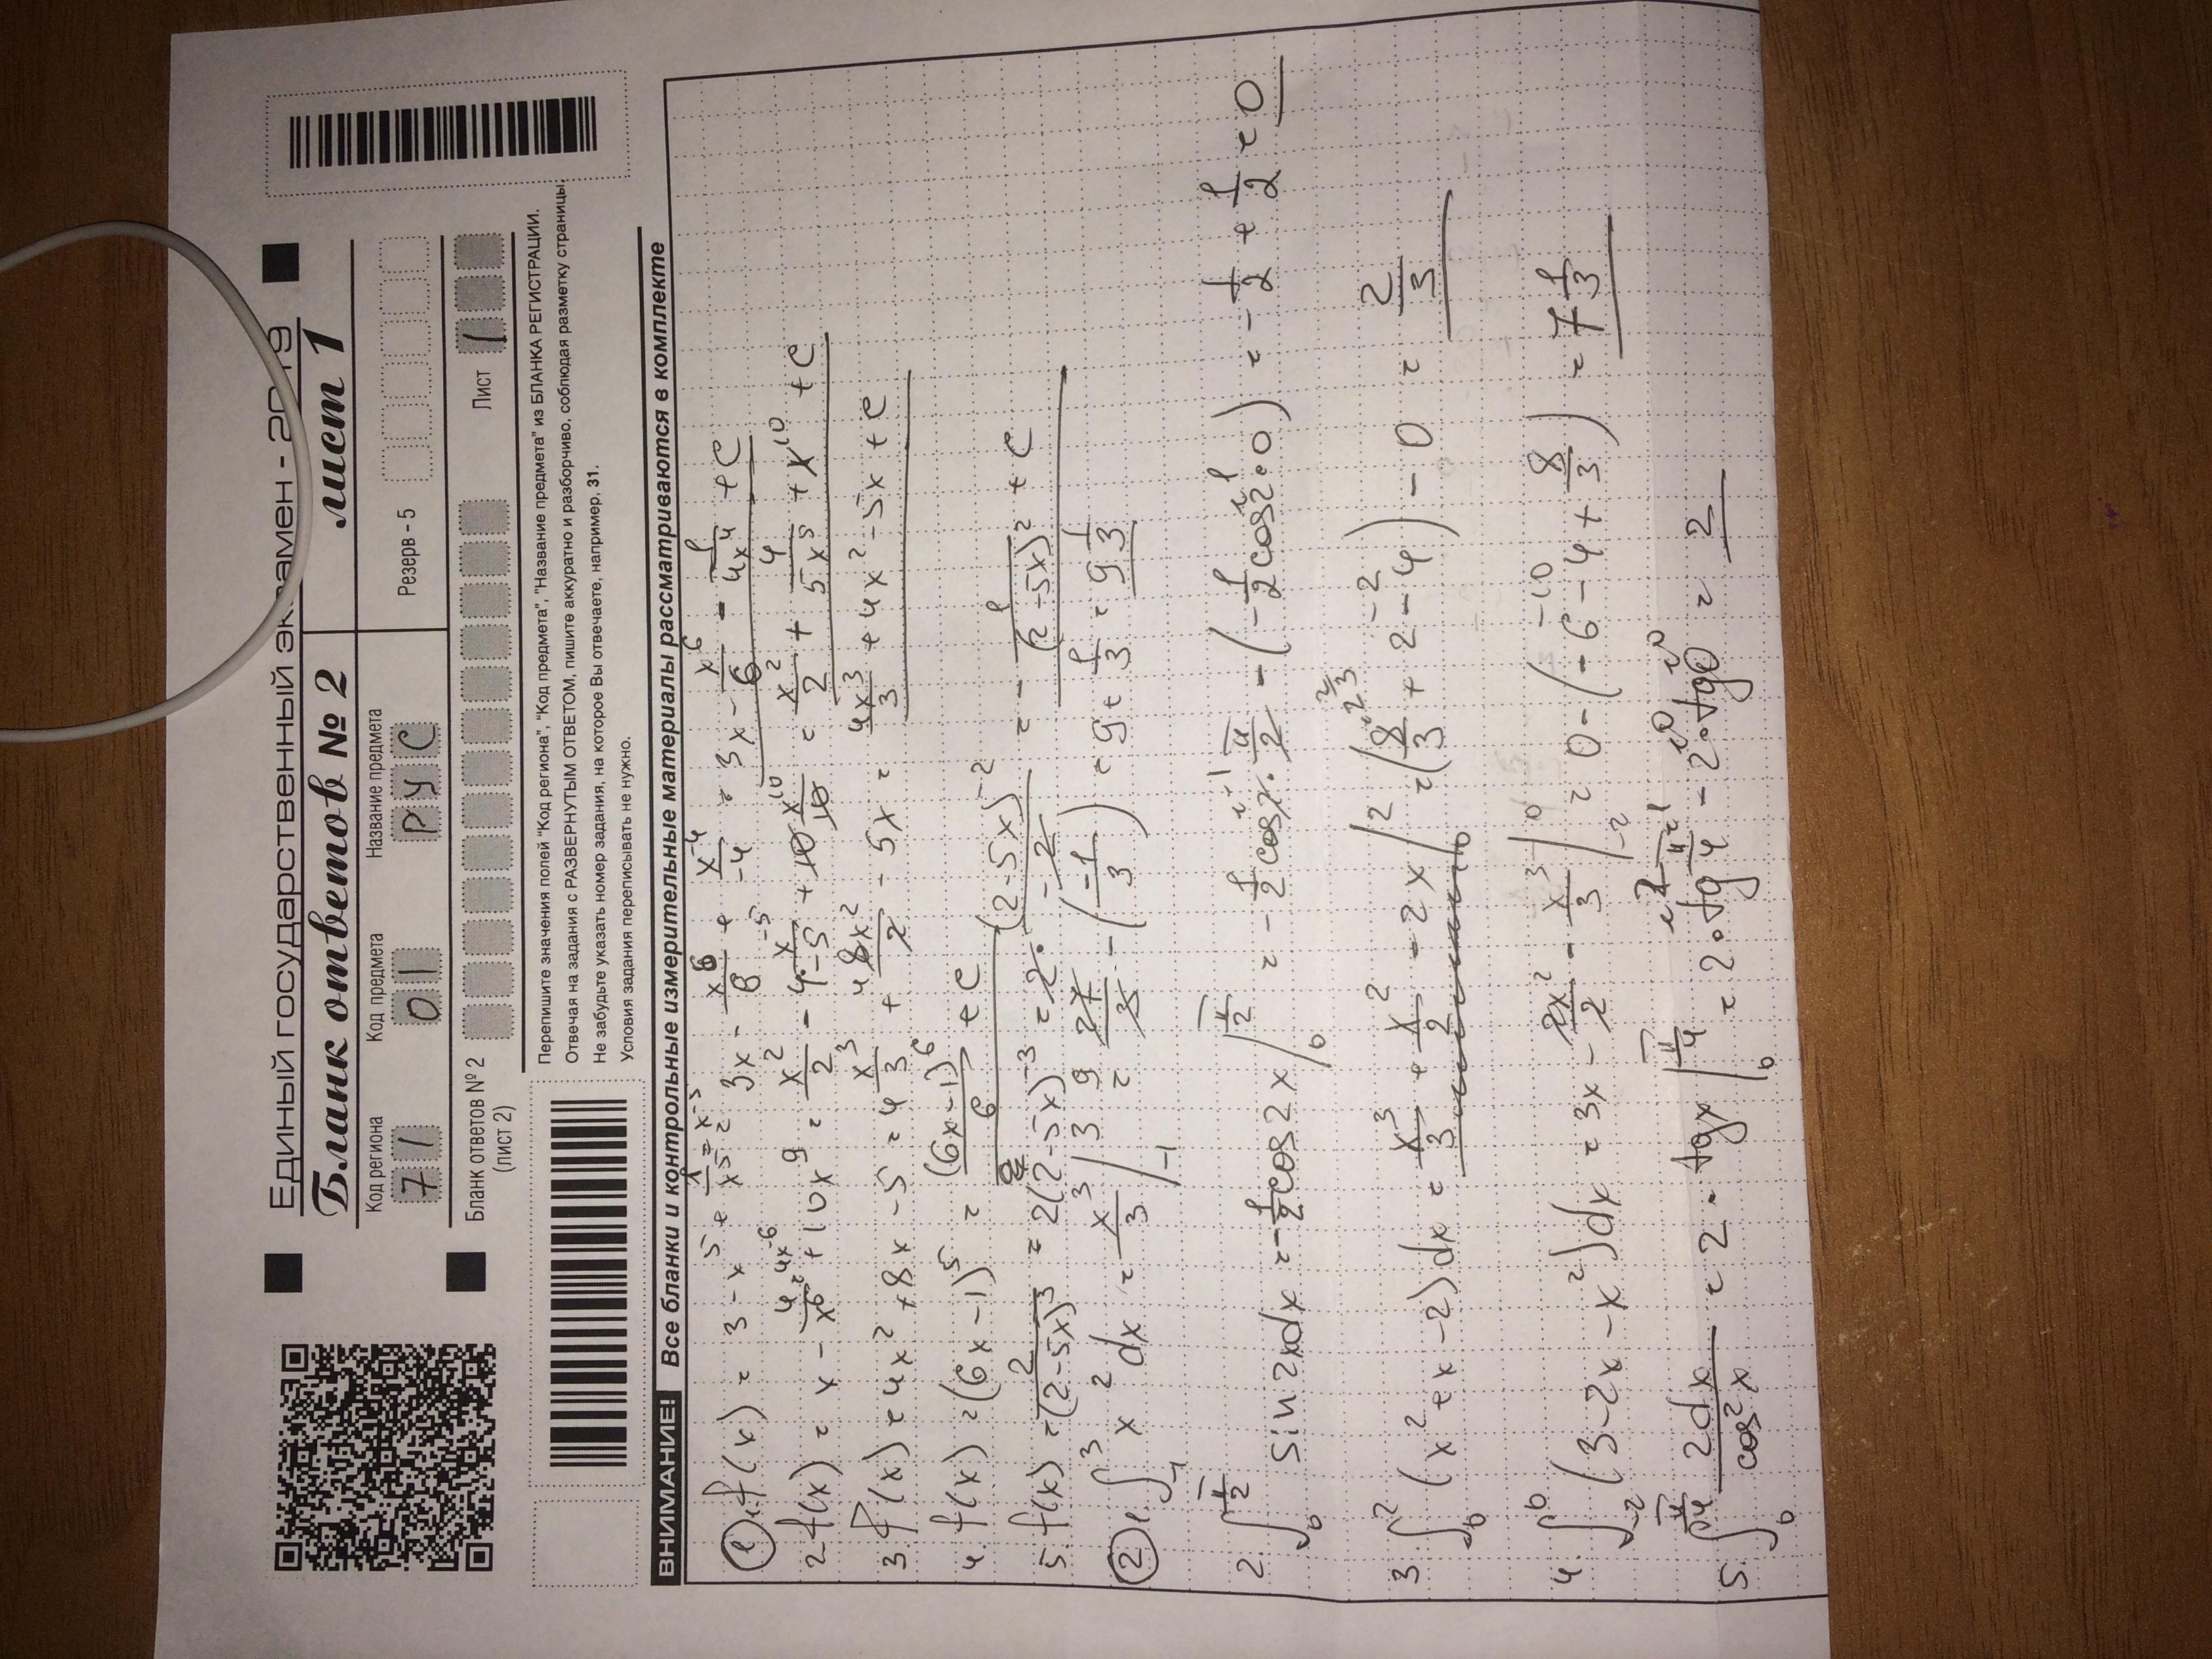 Единый государственный экзамен - 2019
Бланк ответов № 2 лист 1
Код региона Код предмета Название предмета Резерв - 5
71 01 РУС
Бланк ответов № 2 (лист 2) Лист 1
Перепишите значения полей "Код региона", "Код предмета", "Название предмета" из БЛАНКА РЕГИСТРАЦИИ.
Отвечая на задания с РАЗВЕРНУТЫМ ОТВЕТОМ, пишите аккуратно и разборчиво, соблюдая разметку страницы.
Не забудьте указать номер задания, на которое Вы отвечаете, например, 31.
Условия задания переписывать не нужно.
ВНИМАНИЕ! Все бланки и контрольные измерительные материалы рассматриваются в комплекте
① 1. f(x) = 3 - x^5 + 1/x^5 = x^-5 = 3x - x^6/6 + x^-4/-4 = 3x - x^6/6 - 1/4x^4 + C
2 f(x) = x - 4/x^6 = 4x^-6 + 10x^9 = x^2/2 - 4·x^-5/-5 + 10x^10/10 = x^2/2 + 4/5x^5 + x^10 + C
3. f(x) = 4x^2 + 8x - 5 = 4 x^3/3 + 8x^2/2 - 5x = 4x^3/3 + 4x^2 - 5x + C
4. f(x) = (6x-1)^5 = (6x-1)^6/6 + C
5. f(x) = 2/(2-5x)^3 = 2(2-5x)^-3 = 2·(2-5x)^-2/-2 = - 1/(2-5x)^2 + C
② 1. ∫_-1^3 x^2 dx = x^3/3 |_-1^3 = 27/3 - (-1/3) = 9 + 1/3 = 9 1/3
2. ∫_0^π/2 sin2xdx = -1/2 cos2x |_0^π/2 = -1/2 cos2·π/2 - (-1/2 cos2·0) = -1/2 + 1/2 = 0
3. ∫_0^2 (x^2+x-2)dx = x^3/3 + x^2/2 - 2x |_0^2 = (8/3 + 2 - 4) - 0 = 2/3
4. ∫_-2^0 (3-2x-x^2)dx = 3x - 2x^2/2 - x^3/3 |_-2^0 = 0 - (-6-4+8/3) = 7 1/3
5. ∫_0^π/4 2dx/cos^2x = 2·tgx |_0^π/4 = 2·tg π/4 - 2·tg0 = 2